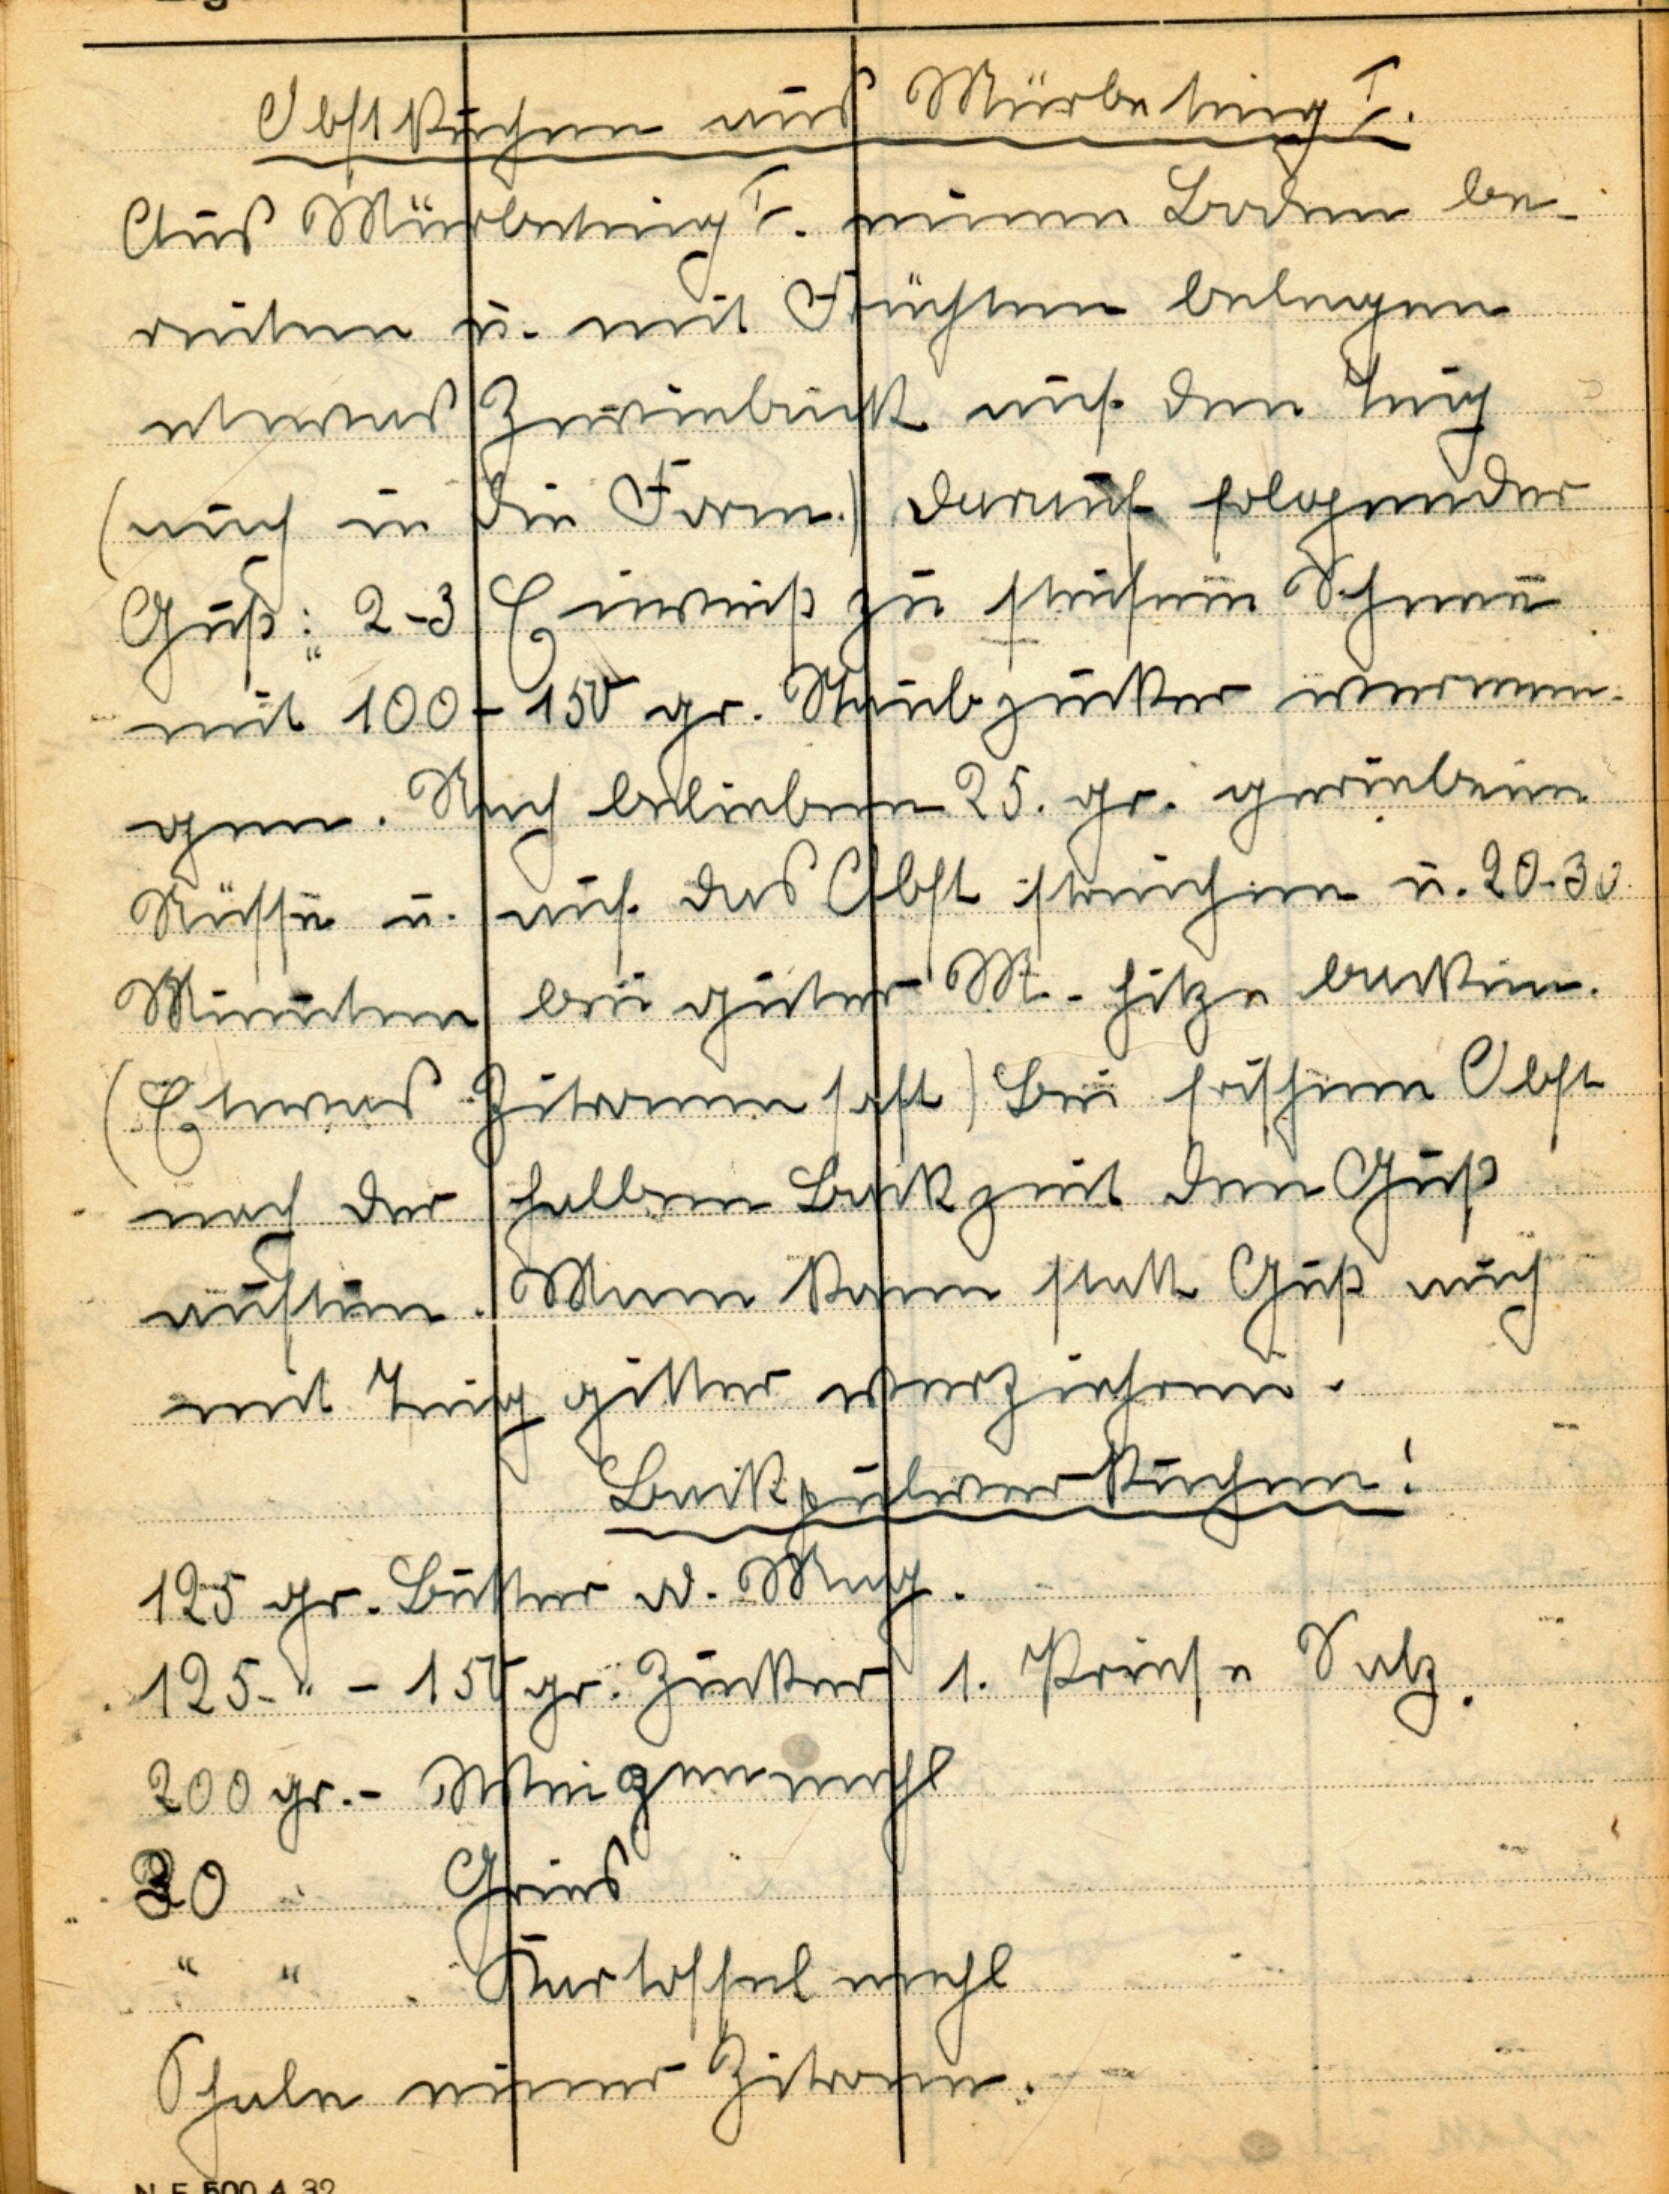 Obstkuchen aus Mürbeteig I.
Aus Mürbeteig I. einen Boden be-
reiten u. mit Früchten belegen
etwas Zwieback auf den Teig
(auch in die Form.) darauf folgender
Guß: 2-3 Eiweiß zu steifem Schnee
mit 100-150 gr. Staubzucker vermen-
gen. Nach belieben 25. gr. geriebene
Nüsse u. auf das Obst streichen u. 20-30
Minuten bei guter M.-hitze backen.
(Etwas Zitronensaft) Bei frischem Obst
nach der halben Backzeit den Guß
auftun. Mann kann statt Guß auch
mit Teig gitter verziehren.
Backpulverkuchen:
125 gr. Butter o. Mag.
125 - " - 150 gr. Zucker 1. Briese Salz.
200 gr. - Weizenmehl
30 " Gries
" " Kartoffelmehl
Schale einer Zitrone.
N. F. 500 4. 32